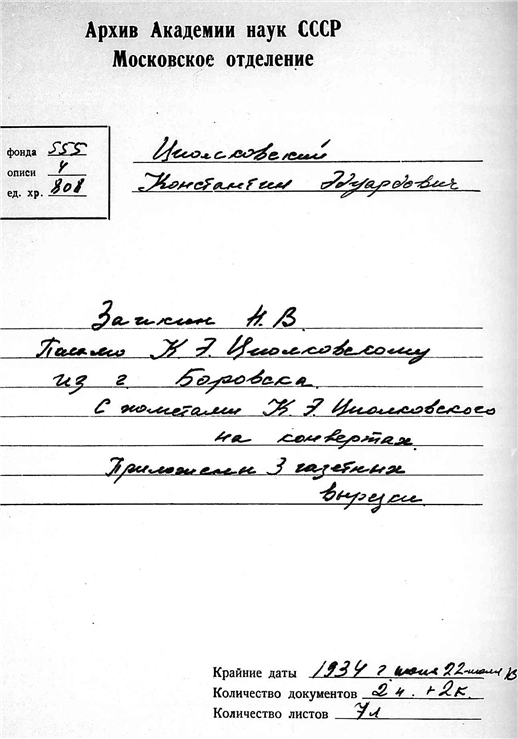 Архив Академии наук СССР
Московское отделение
фонда 555
описи 4
ед. хр. 808
Циолковский
Константин Эдуардович
Зайкин Н.В.
Письмо К.Э. Циолковскому
из г. Боровска.
С пометами К.Э. Циолковского
на конвертах.
Приложены 3 газетных
вырезки.
Крайние даты 1934 г. июня 22-июля 13
Количество документов 2 п. + 2 к.
Количество листов 7 л